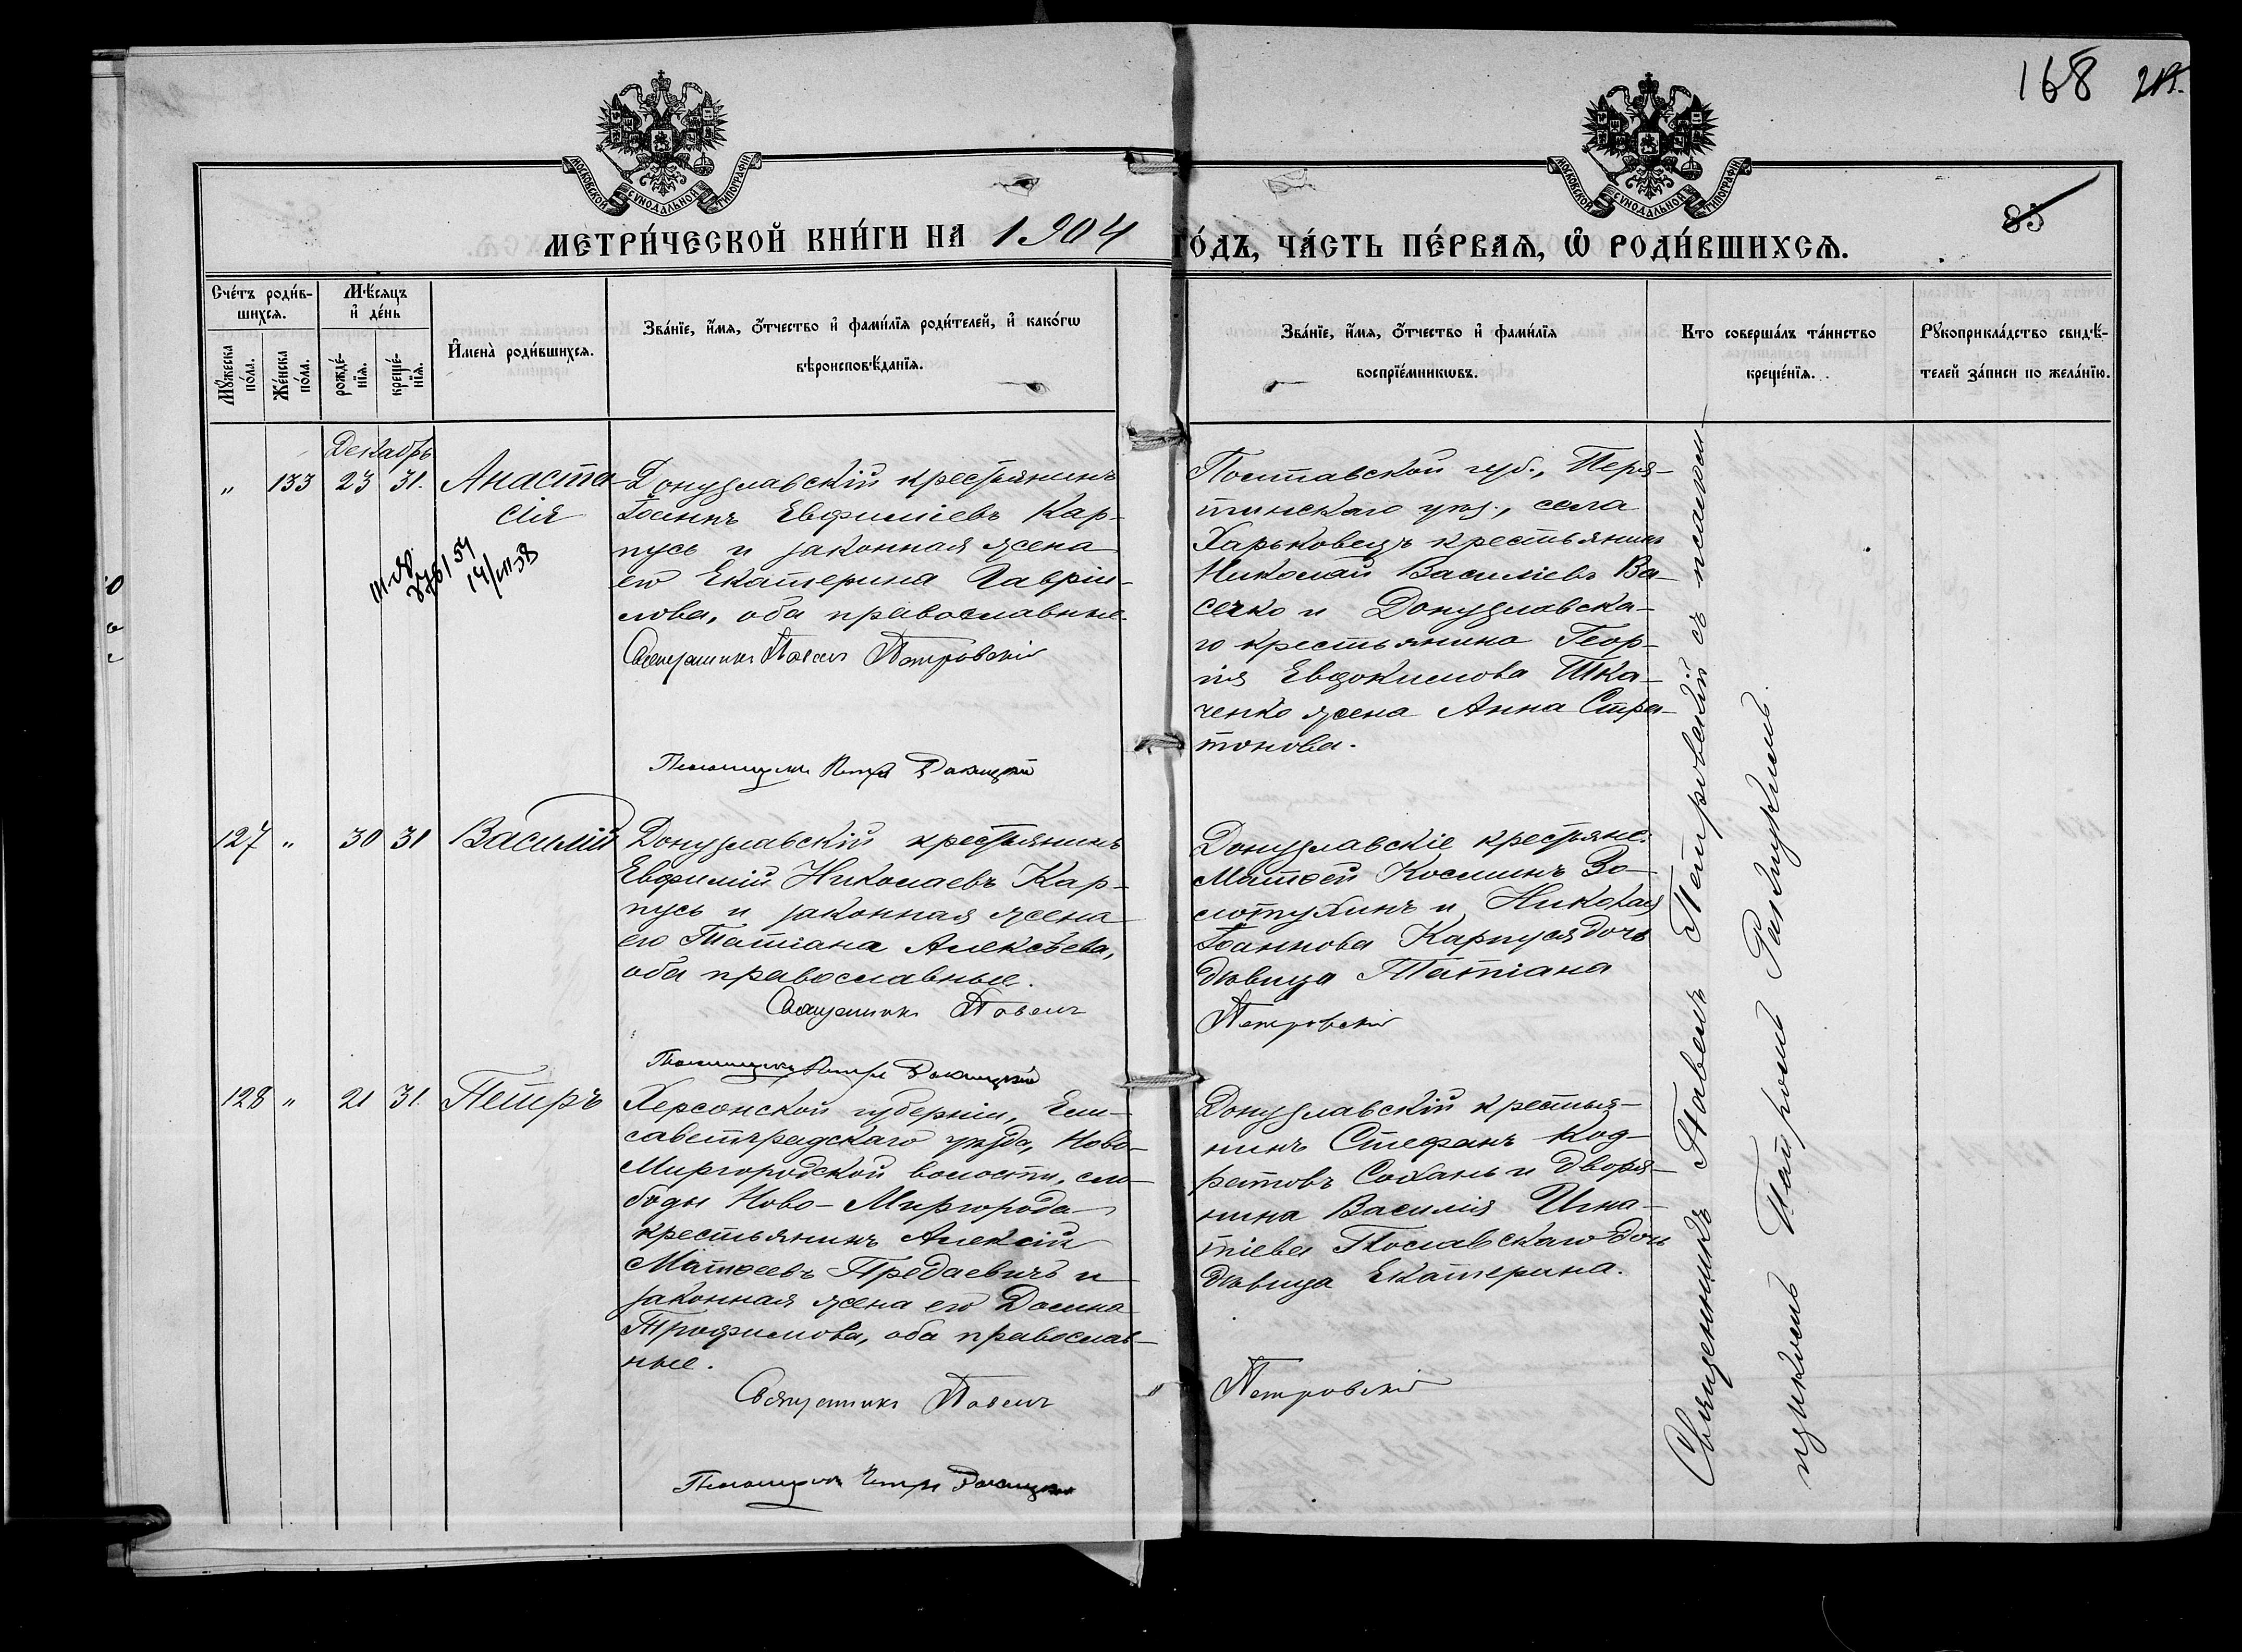 168
МОСКОВСКОЙ СѴНОДАЛЬНОЙ ТИПОГРАФІИ
МОСКОВСКОЙ СѴНОДАЛЬНОЙ ТИПОГРАФІИ
85
МЕТРИ́ЧЕСКОЙ КНИ́ГИ НА 1904 ГО́ДЪ, ЧА́СТЬ ПЕ́РВАѦ, Ѽ РОДИ́ВШИХСѦ.
Сче́тъ роди́в-
шихсѧ.
Мꙋ́жеска
по́ла.
Же́нска
по́ла.
Мѣ́сѧцъ
и҆ де́нь
рожде́-
нїѧ.
креще́-
нїѧ.
И҆мена̀ роди́вшихсѧ.
Зва́нїе, и҆́мѧ, ѻ҆́тчество и҆ фами́лїѧ роди́телей, и҆ како́гѡ
вѣроисповѣ́данїѧ.
Зва́нїе, и҆́мѧ, ѻ҆́тчество и҆ фами́лїѧ
воспрїе́мникѡвъ.
Кто соверша́лъ та́инство
креще́нїѧ.
Рꙋкоприкла́дство свидѣ́-
телей за́писи по жела́нїю.
Декабрь
" 133 23 31. Анаста-
сія
Донузлавскій крестьянинъ
Іоаннъ Евфиміевъ Кар-
пусь и законная жена
его Екатерина Гаврiи-
лова, оба православные.
Священникъ Павелъ Петровскій
Псаломщикъ Петръ
Полтавской губ., Пиря-
тинскаго уѣз., села
Харьковецъ крестьянинъ
Николай Василіевъ Ва-
сечко и Донузлавска-
го крестьянина Геор-
гія Евдокимова Шка-
ченко жена Анна Стра-
тонова.
127 " 30 31 Василій
Донузлавскій крестьянинъ
Евфимій Николаевъ Кар-
пусь и законная жена
его Татіана Алексѣева,
оба православные.
Священникъ Павелъ
Псаломщикъ Петръ
Донузлавскіе крестьяне:
Матѳей Косминъ Зо-
лотухинъ и Николая
Іоаннова Карпуся дочь
дѣвица Татіана
Петровскій
128 " 21 31. Петръ
Херсонской губерніи, Ели-
саветградскаго уѣзда, Ново-
Миргородской волости, сло-
боды Ново-Миргорода
крестьянинъ Алексій
Матѳеевъ Предаевичъ и
законная жена его Домна
Трофимова, оба православ-
ные.
Священникъ Павелъ
Псаломщикъ Петръ
Донузлавскій крестья-
нинъ Стефанъ Код-
ратовъ Сохань и дворя-
нина Василія Игна-
тіева Пославскаго дочь
дѣвица Екатерина.
Петровскій
Священникъ Павелъ Петровскій съ псалом-
щикомъ Петромъ